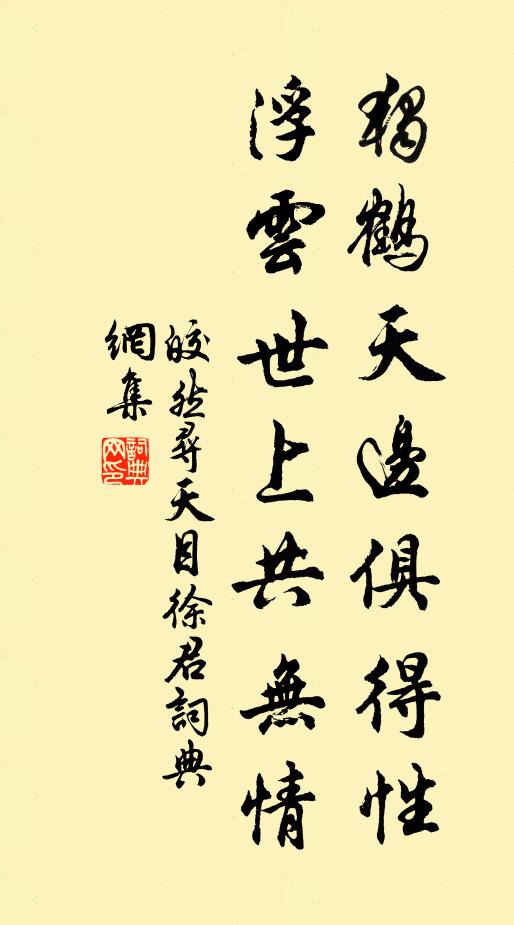 獨鶴天邊俱得性
浮雲世上共無情
皎然尋天目徐君詞典
網集
詞典
网印